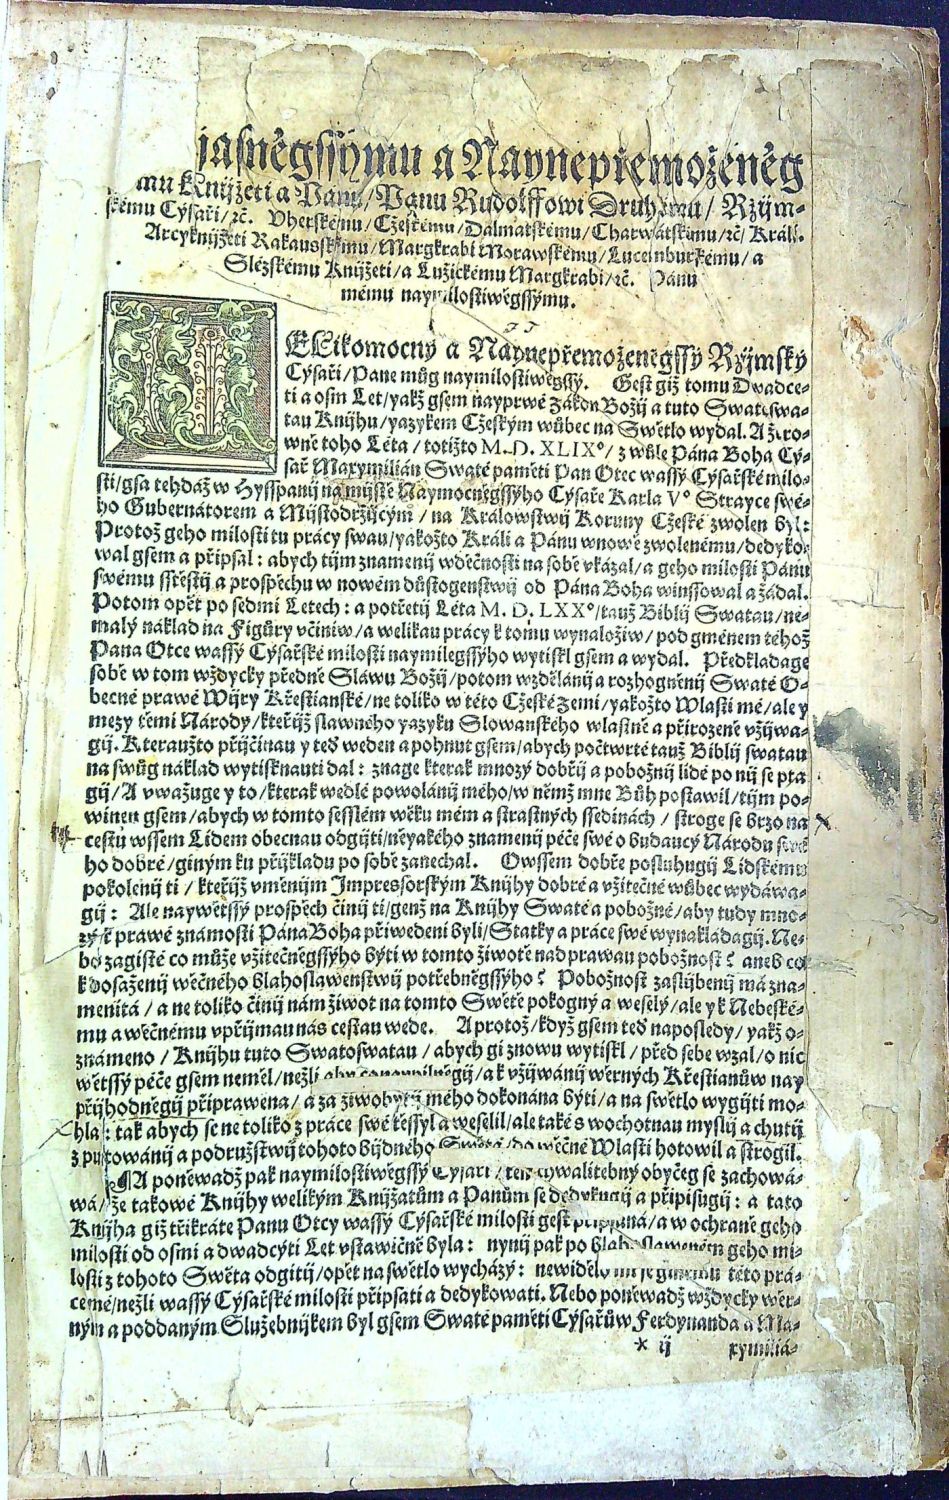 jasněgssýmu a Naynepřemoženěg
mu Knijžeti a Panu/ Panu Rudolffowi Druhému/ Ržijm-
skému Cýsaři/ ꝛč. Vherskému/ Cžeskému/ Dalmatskému/ Charwatskému/ ꝛč/ Králi.
Arcyknijžeti Rakauskému/ Margkrabi Morawskému/ Lucemburskému/ a
Slézskému Knijžeti/ a Lužickému Margkrabi/ ꝛč. Pánu
mému naymilostiwěgssýmu.
WElikomocný a Naynepřemoženěgssý Ržijmský
Cýsaři/ Pane můg naymilostiwěgssý. Gest giž tomu Dwadce-
ti a osm Let/ yakž gsem nayprwé Zákon Božij a tuto Swatoswa-
tau Knijhu/ yazykem Cžeským wůbec na Swětlo wydal. A že ro-
wně toho Léta/ totižto M. D. XLIX°/ z wůle Pána Boha Cý-
sař Maxymilián Swaté paměti Pan Otec wassý Cýsařské milo-
sti/ gsa tehdáž w Hysspanij na mijstě Naymocněgssýho Cýsaře Karla V° Strayce swé-
ho Gubernátorem a Mijstodržijcým/ na Králowstwij Koruny Cžeské zwolen byl:
Protož geho milosti tu prácy swau/ yakožto Králi a Pánu wnowě zwolenému/ dedyko-
wal gsem a připsal: abych tijm znamenij wděčnosti na sobě vkázal/ a geho milosti Pánu
swému sstěstij a prospěchu w nowém důstogenstwij od Pána Boha winssowal a žádal.
Potom opět po sedmi Letech: a potřetij Léta M. D. LXX°/ tauž Biblij Swatau/ ne-
malý náklad na Figůry včiniw/ a welikau prácy k tomu wynaložiw/ pod gménem téhož
Pana Otce wassý Cýsařské milosti naymilegssýho wytiskl gsem a wydal. Předkládage
sobě w tom wždycky předně Sláwu Božij/ potom wzdělánij a rozhogněnij Swaté O-
becné prawé Wijry Křestianské/ ne toliko w této Cžeské zemi/ yakožto Wlasti mé/ ale y
mezy těmi Národy/ kteřijž slawného yazyku Slowanského wlastně a přirozeně vžijwa-
gij. Kteraužto přijčinau y teď weden a pohnut gsem/ abych počtwrté tauž Biblij swatau
na swůg náklad wytisknauti dal: znage kterak mnozý dobřij a pobožnij lidé po nij se pta
gij/ A vwažuge y to/ kterak wedlé powolánij mého/ w němž mne Bůh postawil/ tijm po-
winen gsem/ abych w tomto sesslém wěku mém a strastných ssedinách/ stroge se brzo na
cestu wssem Lidem obecnau odgijti/ něyakého znamenij péče swé o budaucý Národu swé
ho dobré/ giným ku přijkladu po sobě zanechal. Owssem dobře posluhugij Lidskému
pokolenij ti/ kteřijž vměnijm Impressorským Knijhy dobré a vžitečné wůbec wydáwa-
gij: Ale naywětssý prospěch činij ti/ genž na Knijhy Swaté a pobožné/ aby tudy mno-
zý/ k prawé známosti Pána Boha přiwedeni byli/ Statky a práce swé wynakládagij. Ne-
bo zagisté co může vžitečněgssýho býti w tomto žiwotě nad prawau pobožnost? aneb co
k dosaženij wěčného blahoslawenstwij potřebněgssýho? Pobožnost zaslijbenij má zna-
menitá/ a ne toliko činij nám žiwot na tomto Swětě pokogný a weselý/ ale y k Nebeské-
mu a wěčnému vpřijmau nás cestau wede. A protož/ když gsem teď naposledy/ yakž o-
známeno/ Knijhu tuto Swatoswatau/ abych gi znowu wytiskl/ před sebe wzal/ o nic
wětssý péče gsem neměl/ nežli aby co naypilněgij/ a k vžijwánij wěrných Křestianůw nay
přijhodněgij připrawena/ a za žiwobytij mého dokonána býti/ a na swětlo wygijti mo-
hla: tak abych se ne toliko z práce swé těssyl a weselil/ ale také s wochotnau myslij a chutij
z putowánij a podružstwij tohoto bijdného Swěta/ do wěčné Wlasti hotowil a strogil.
¶ A poněwadž pak naymilostiwěgssý Cýsaři/ ten chwalitebný obyčeg se zachowá-
wá/ že takowé Knijhy welikým Knijžatům a Panům se dedykugij a připisugij: a tato
Knijha giž třikráte Panu Otcy wassý Cýsařské milosti gest připsána/ a w ochraně geho
milosti od osmi a dwadcýti Let vstawičně byla: nynij pak po blahoslaweném geho mi-
losti z tohoto Swěta odgitij/ opět na swětlo wycházý: newidělo mi se ginému této prá-
ce mé/ nežli wassý Cýsařské milosti připsati a dedykowati. Nebo poněwadž wždycky wěr-
ným a poddaným Služebnijkem byl gsem Swaté paměti Cýsařůw Ferdynanda a Ma-
* ij xymiliá-